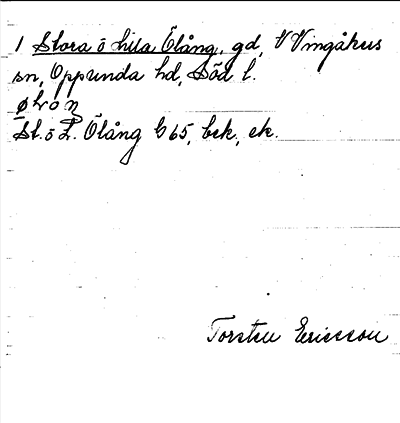 1 Stora o Lilla Ölång, gd, V Vingåkers
sn, Oppunda hd, Söd l.
St. o L. Ölång G 65, bek, ek.
Torsten Ericsson